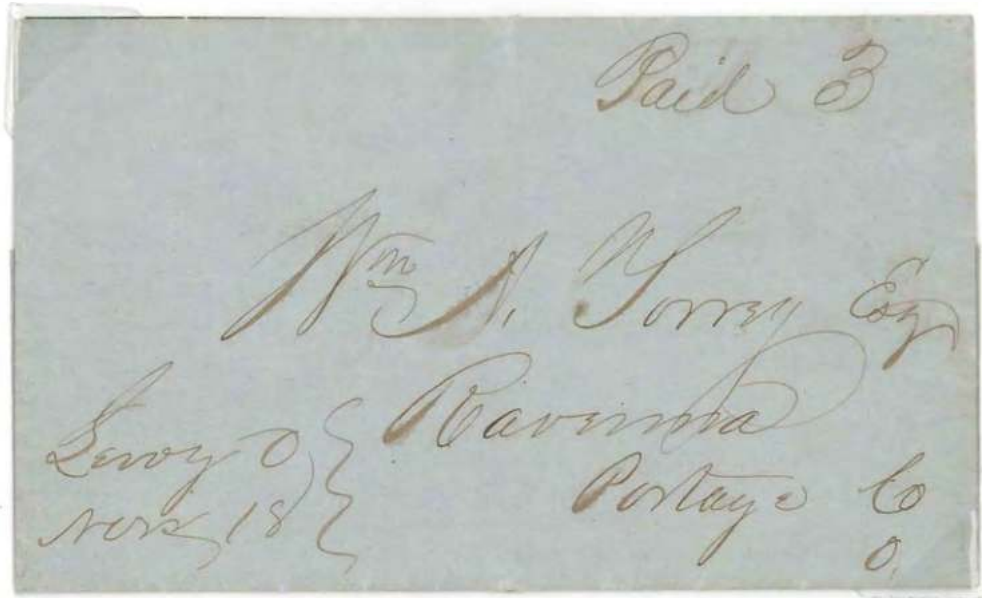 Paid 3
Wm A. Torrey Esq
Ravenna
Portage Co
O.
Leroy O
Nov 18